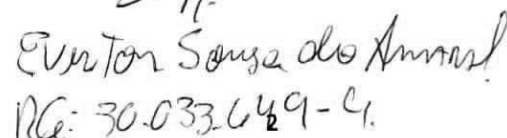 Everton Souza do Amaral
RG: 30.033.649-4.